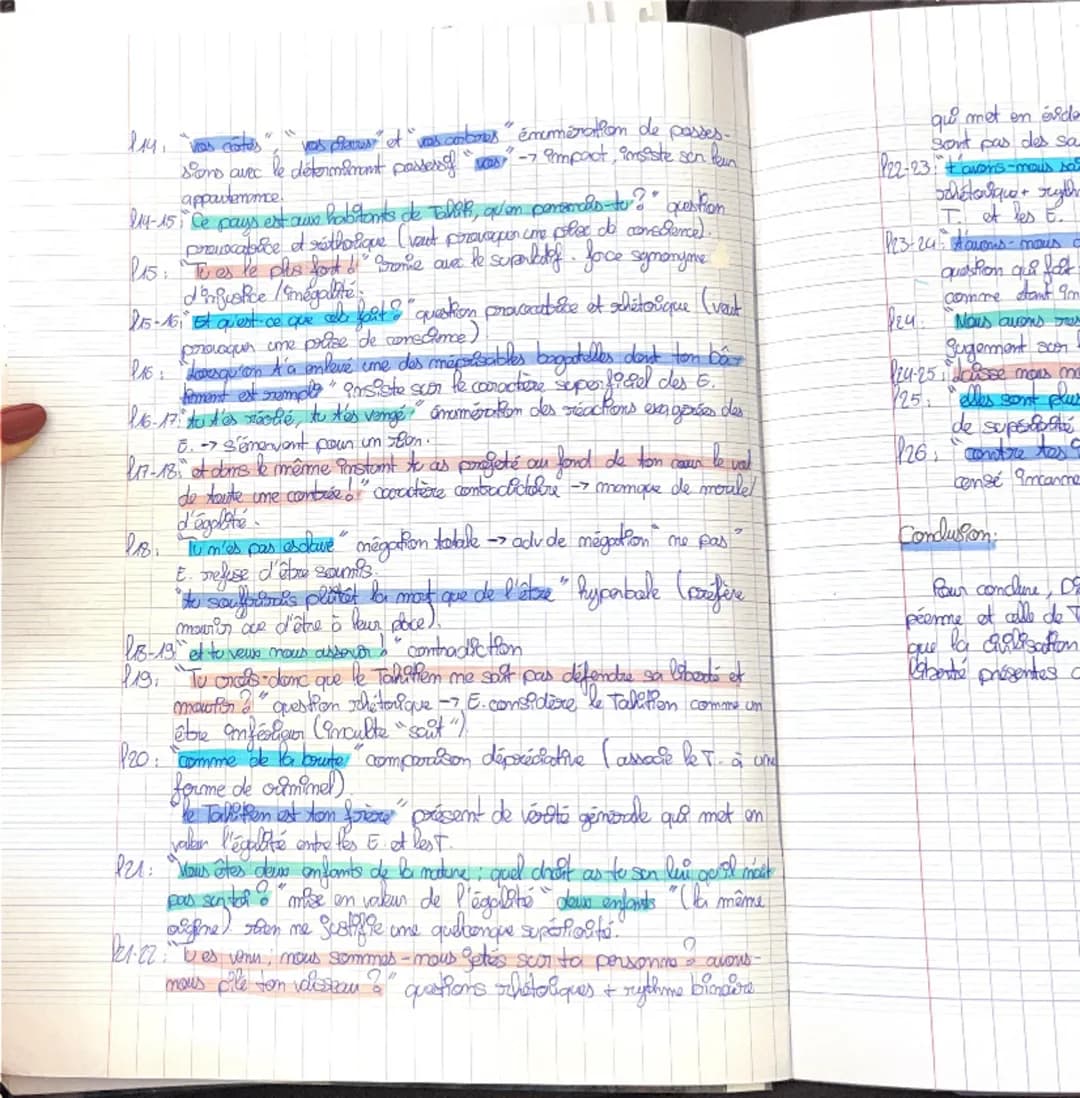 l14. "vos côtes", "vos pierres" et "vos arbres" énumération de posses-
sions avec le déterminant possessif "vos" -> impact, insiste sur leur
appartenance.
l14-15: "Ce pays est aux habitants de Tahiti, qu'en penserais-tu?" question
provocatrice et réthorique (veut provoquer une prise de conscience).
l15: "Tu es le plus fort!" Ironie avec le superlatif. force synonyme
d'injustice / inégalité.
l15-16: "Et qu'est-ce que cela fait?" question provocatrice et rhétorique (veut
provoquer une prise de conscience)
l16: "lorsqu'on t'a enlevé une des méprisables bagatelles dont ton bâ-
timent est rempli" insiste sur le caractère superficiel des E.
l16-17: "tu t'es récrié, tu t'es vengé;" énumération des réactions exagérées des
E. -> s'énervent pour un rien.
l17-18: "et dans le même instant tu as projeté au fond de ton cœur le vol
de toute une contrée!" caractère contradictoire -> manque de morale/
d'égalité.
l18: "Tu n'es pas esclave" négation totale -> adv de négation "ne pas"
E. refuse d'être soumis.
"tu souffrirais plutôt la mort que de l'être" hyperbole (préfère
mourir que d'être à leur place).
l18-19: "et tu veux nous asservir!" contradiction
l19: "Tu crois donc que le Tahitien ne sait pas défendre sa liberté et
mourir?" question rhétorique -> E. considère le Tahitien comme un
être inférieur (inculte "sait")
l20: "comme de la brute" comparaison dépréciative (associe le T. à une
forme de criminel)
"le Tahitien est ton frère" présent de vérité générale qui met en
valeur l'égalité entre les E. et les T.
l21: "Vous êtes deux enfants de la nature; quel droit as-tu sur lui qu'il n'ait
pas sur toi?" mise en valeur de l'égalité "deux enfants" (la même
origine) rien ne justifie une quelconque supériorité.
l21-22: "tu es venu; nous sommes-nous jetés sur ta personne? avons-
nous pillé ton vaisseau?" questions rhétoriques + rythme binaire
qui met en évide
sont pas des sa
l22-23: "t'avons-nous sai
rhétorique + ryth
T. et les E.
l23-24: "t'avons-nous
question qui fait
comme étant in
l24: "Nous avons res
jugement sur
l24-25: "laisse-nous no
l25: "elles sont plus
de supériorité
l26: "contre tes
censé incarne
Conclusion:
Pour conclure, Di
péenne et celle de T
que la civilisation
liberté présentes